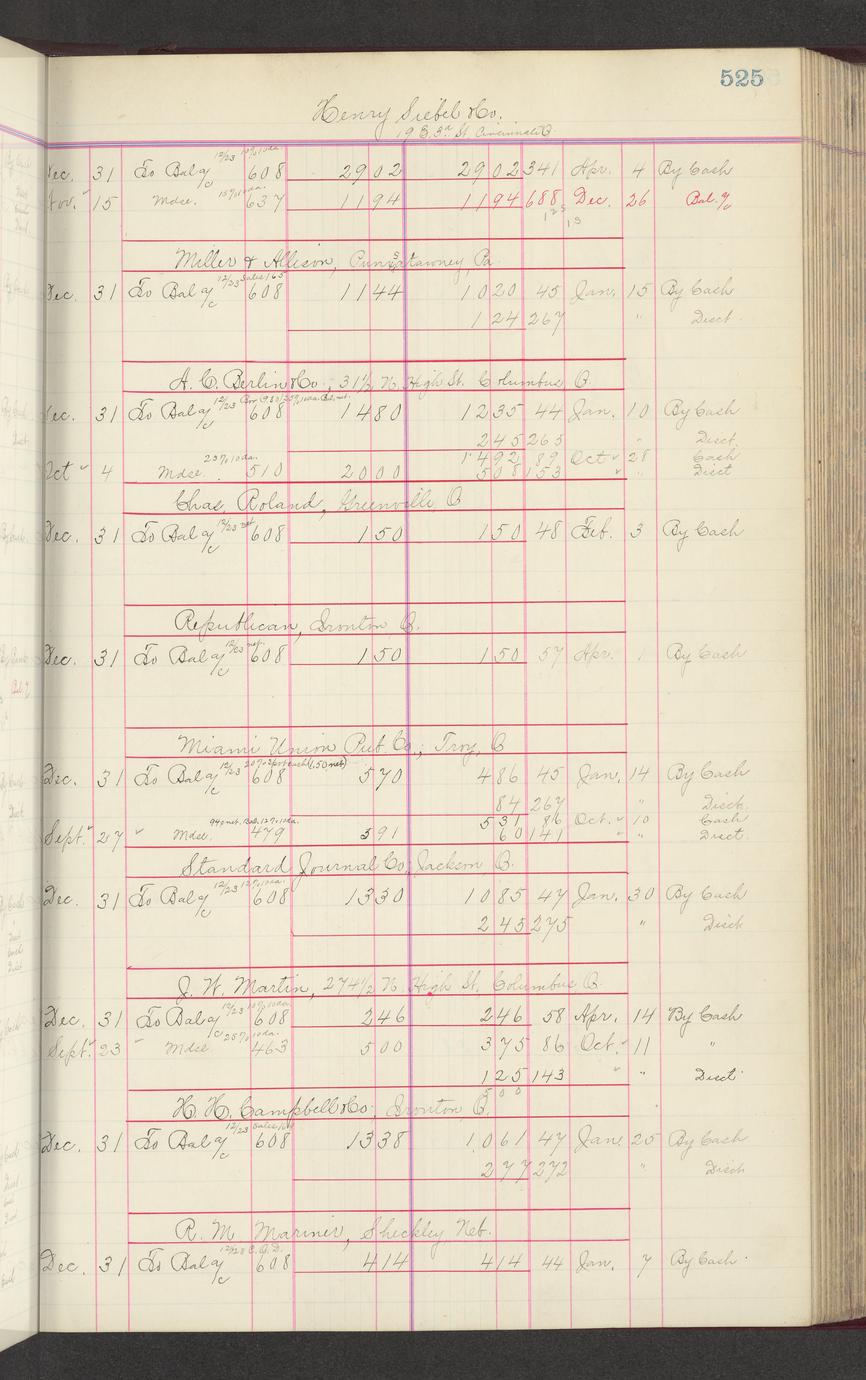 525
Henry Siebel & Co.
19 E. 3rd St. Cincinnati O.
Dec. 31 To Bal a/c 12/23 10% 10 da. 608 2902 2902 341 Apr. 4 By Cash
Nov. " 15 Mdse. 15% 10 da. 637 1194 1194 688 Dec. 26 Bal. a/c
Miller & Allison, Punxsatawney, Pa.
Dec. 31 To Bal a/c 12/23 Sales 165 608 1144 1020 45 Jan. 15 By Cash
124 267 " Disct.
A. C. Berlin & Co., 31 1/2 N. High St. Columbus O.
Dec. 31 To Bal a/c 12/23 608 1480 1235 44 Jan. 10 By Cash
245 265 " Disct.
Oct " 4 Mdse. 25% 10 da. 510 2000 1492 89 Oct " 28 Cash
508 153 " " Disct
Chas. Roland, Greenville, O
Dec. 31 To Bal a/c 12/23 net 608 150 150 48 Feb. 3 By Cash
Republican, Ironton O.
Dec. 31 To Bal a/c 12/23 net 608 150 150 57 Apr. 1 By Cash
Miami Union Pub. Co., Troy, O
Dec. 31 To Bal a/c 12/23 (1.50 net) 608 570 486 45 Jan. 14 By Cash
84 267 " Disct.
Sept. " 27 " Mdse. 940 net. Bal. 12% 10 da. 479 591 531 86 Oct. " 10 Cash
60 141 " " Disct.
Standard Journal Co., Jackson O.
Dec. 31 To Bal a/c 12/23 10 da. 608 1330 1085 47 Jan. 30 By Cash
245 275 " Disct
J. W. Martin, 274 1/2 N. High St., Columbus O.
Dec. 31 To Bal a/c 12/23 10% 10 da. 608 246 246 58 Apr. 14 By Cash
Sept. " 23 " Mdse 25% 10 da. 463 500 375 86 Oct. " 11 "
125 143 " " Disct.
500
H. H. Campbell & Co., Ironton O.
Dec. 31 To Bal a/c 12/23 Sales 608 1338 1061 47 Jan. 25 By Cash
277 272 " Disct
R. M. Mariner, Sheckley Neb.
Dec. 31 To Bal a/c C.O.D. 608 414 414 44 Jan. 7 By Cash